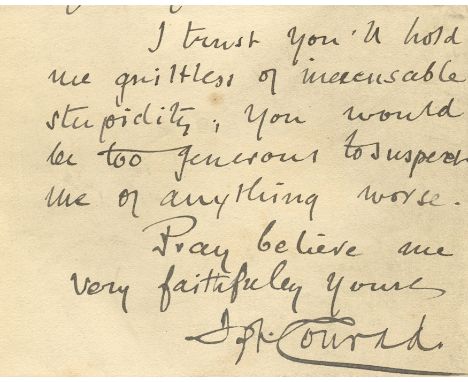 I trust you'll hold
me guiltless of inexcusable
stupidity; you would
be too generous to suspect
me of anything worse.
Pray believe me
very faithfully yours
Jph. Conrad.